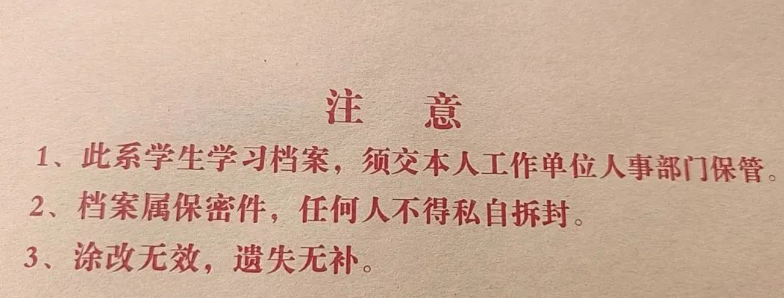 注 意
1、此系学生学习档案，须交本人工作单位人事部门保管。
2、档案属保密件，任何人不得私自拆封。
3、涂改无效，遗失无补。